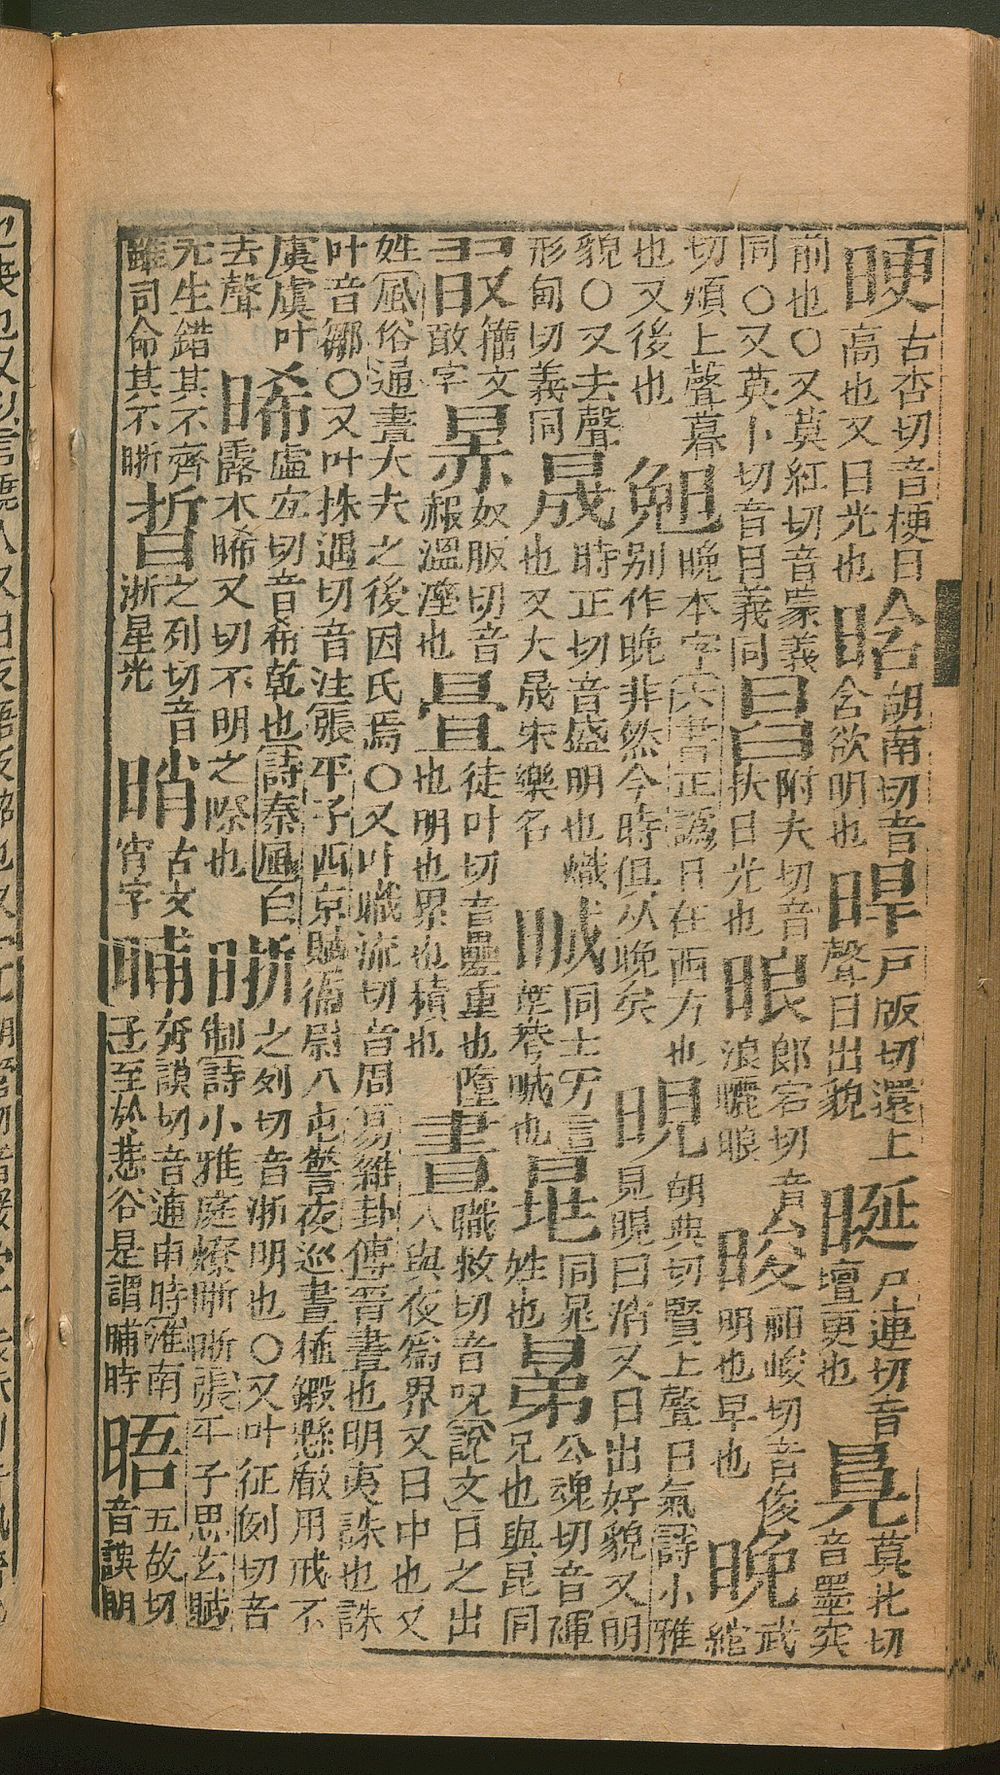 古杏切音梗日高也又日光也 晗 胡南切音含欲明也 晘 戶版切還上聲日出貌 尸連切音羶更也 莫北切音墨突
前也〇又莫紅切音蒙義同〇又莫卜切音目義同 附夫切音扶日光也 㫰 郎宕切音浪曬㫰 晙 祖峻切音俊明也早也 晚 武綰
切煩上聲暮也又後也 晚本字六書正譌日在西方也別作晚非然今時俱从晚矣 晛 胡典切賢上聲日氣詩小雅見晛曰消又日出好貌又明
貌〇又去聲形甸切義同 晟 時正切音盛明也熾也又大晟宋樂名 同 也 同晁姓也 晜 公魂切音褌兄也與昆同
籒文敢字 㬈 奴版切音赧溫溼也 徒叶切音疊重也墮也明也界也積也 晝 職救切音呪說文日之出入與夜爲界又日中也又
姓風俗通晝大夫之後因氏焉〇又叶職流切音周易雜卦傳晉晝也明夷誅也誅叶音鄒〇又叶株遇切音注張平子西京賦衛尉八屯警夜巡晝植鎩懸瞂用戒不
虞虞叶去聲 晞 虛宜切音希乾也詩秦風白露未晞又切不明之際也 晣 之列切音浙明也〇又叶征例切音制詩小雅庭燎晣晣張平子思玄賦
死生錯其不齊雖司命其不晣 晢 之列切音浙星光 古文宵字 晡 奔謨切音逋申時淮南子至於悲谷是謂晡時 晤 五故切音誤朋